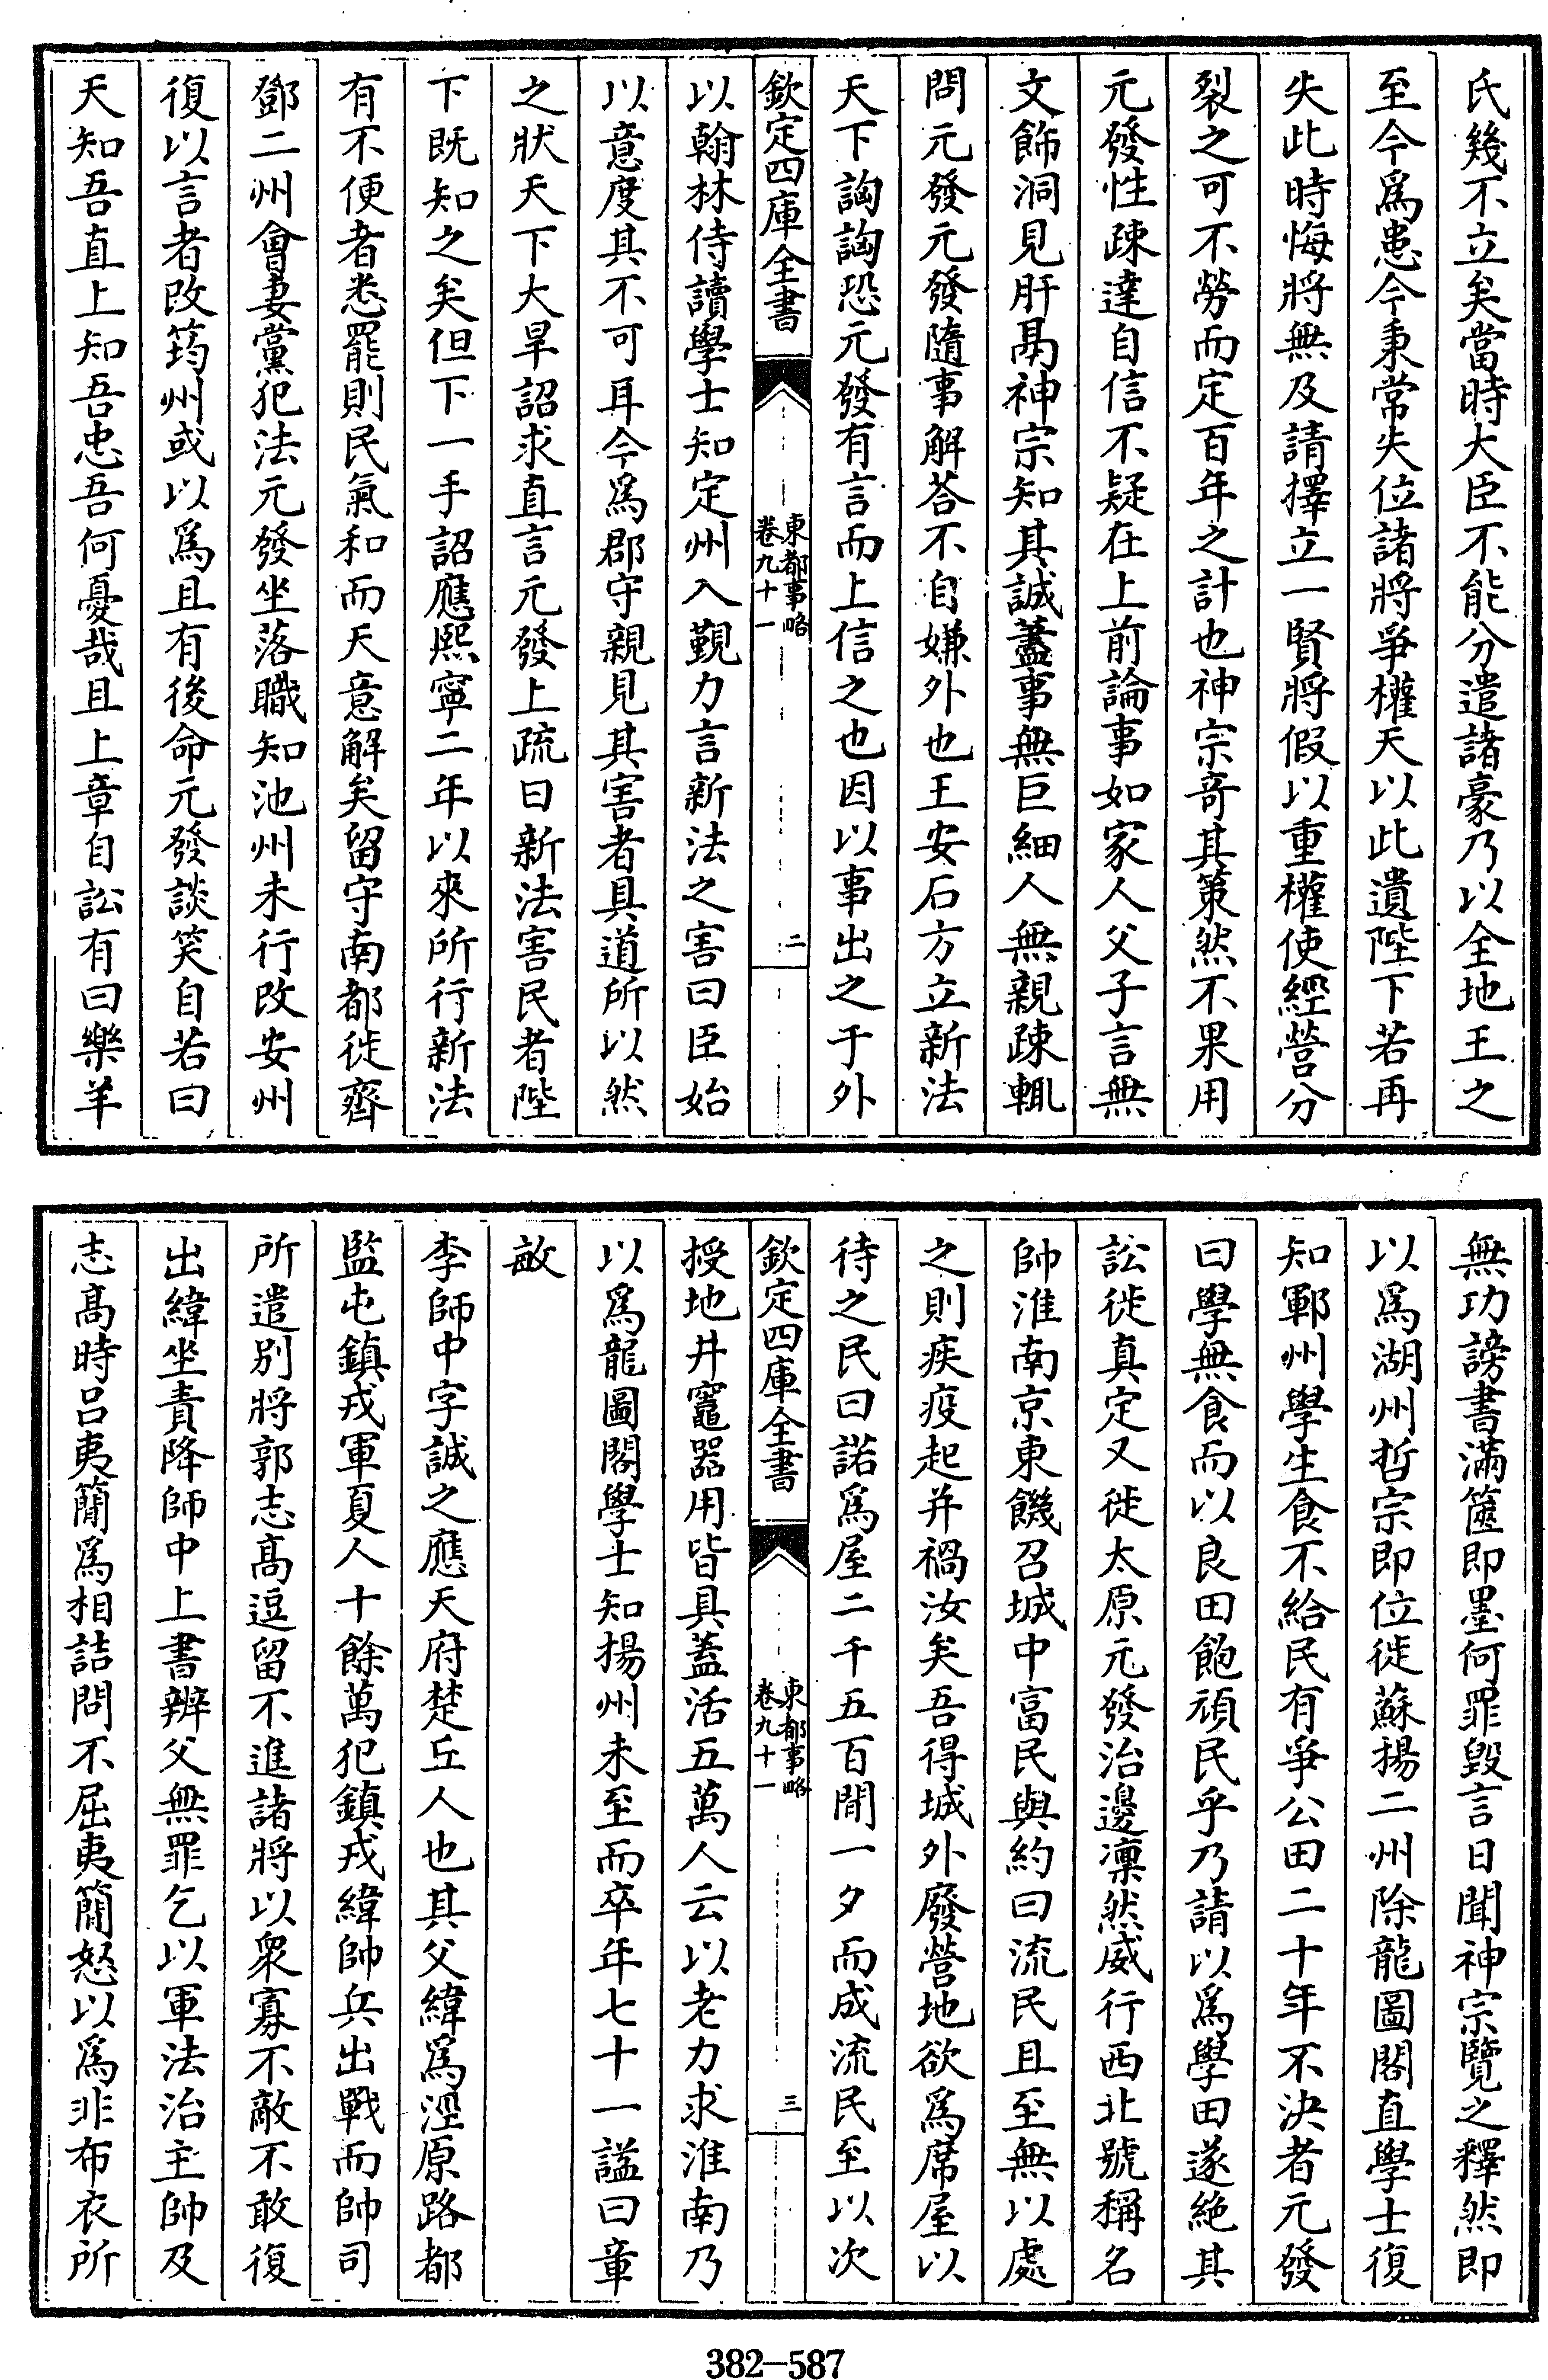 氏幾不立矣當時大臣不能分遣諸豪乃以全地王之
至今爲患今秉常失位諸將爭權天以此遺陛下若再
失此時悔將無及請擇立一賢將假以重權使經營分
裂之可不勞而定百年之計也神宗竒其策然不果用
元發性疎達自信不疑在上前論事如家人父子言無
文飾洞見肝鬲神宗知其誠蓋事無巨細人無親疎輒
問元發元發隨事解荅不自嫌外也王安石方立新法
天下詾詾恐元發有言而上信之也因以事出之于外
欽定四庫全書
東都事略
卷九十一
二
以翰林侍讀學士知定州入覲力言新法之害曰臣始
以意度其不可耳今爲郡守親見其害者具道所以然
之狀天下大旱詔求直言元發上疏曰新法害民者陛
下既知之矣但下一手詔應熙寧二年以來所行新法
有不便者悉罷則民氣和而天意解矣留守南都徙齊
鄧二州會妻黨犯法元發坐落職知池州未行改安州
復以言者改筠州或以爲且有後命元發談笑自若曰
天知吾直上知吾忠吾何憂哉且上章自訟有曰樂羊
無功謗書滿篋即墨何罪毀言日聞神宗覽之釋然即
以爲湖州哲宗即位徙蘇揚二州除龍圖閣直學士復
知鄆州學生食不給民有爭公田二十年不決者元發
曰學無食而以良田飽頑民乎乃請以爲學田遂絶其
訟徙真定又徙太原元發治邊凜然威行西北號稱名
帥淮南京東饑召城中富民與約曰流民且至無以處
之則疾疫起并禍汝矣吾得城外廢營地欲爲席屋以
待之民曰諾爲屋二千五百間一夕而成流民至以次
欽定四庫全書
東都事略
卷九十一
三
授地井竈器用皆具蓋活五萬人云以老力求淮南乃
以爲龍圖閣學士知揚州未至而卒年七十一謚曰章
敏
李師中字誠之應天府楚丘人也其父緯爲涇原路都
監屯鎮戎軍夏人十餘萬犯鎮戎緯帥兵出戰而帥司
所遣别將郭志髙逗留不進諸將以衆寡不敵不敢復
出緯坐責降師中上書辨父無罪乞以軍法治主帥及
志髙時吕夷簡爲相詰問不屈夷簡怒以爲非布衣所
382-587